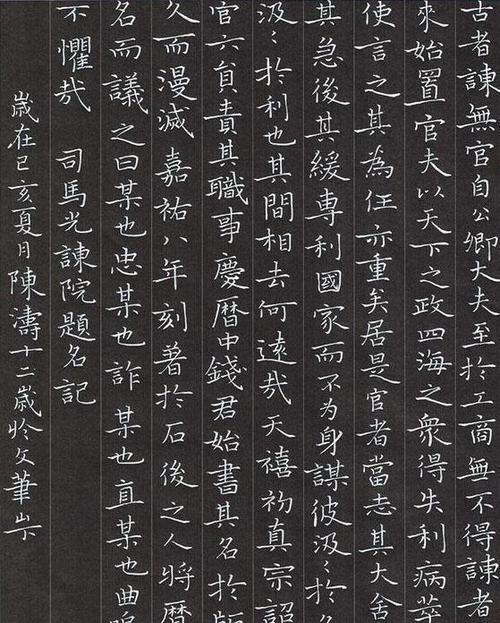 古者諫無官自公卿大夫至於工商無不得諫者
來始置官夫以天下之政四海之衆得失利病萃
使言之其為任亦重矣居是官者當志其大舍
其急後其緩專利國家而不为身謀彼汲〻於
汲〻於利也其間相去何遠哉天禧初真宗詔
官六員責其職事慶曆中錢君始書其名於版
久而漫滅嘉祐八年刻著於石後之人將曆
名而議之曰某也忠某也詐某也直某也曲
不懼哉 司馬光諫院題名記
歲在己亥夏月陳濤十二歲於文筆